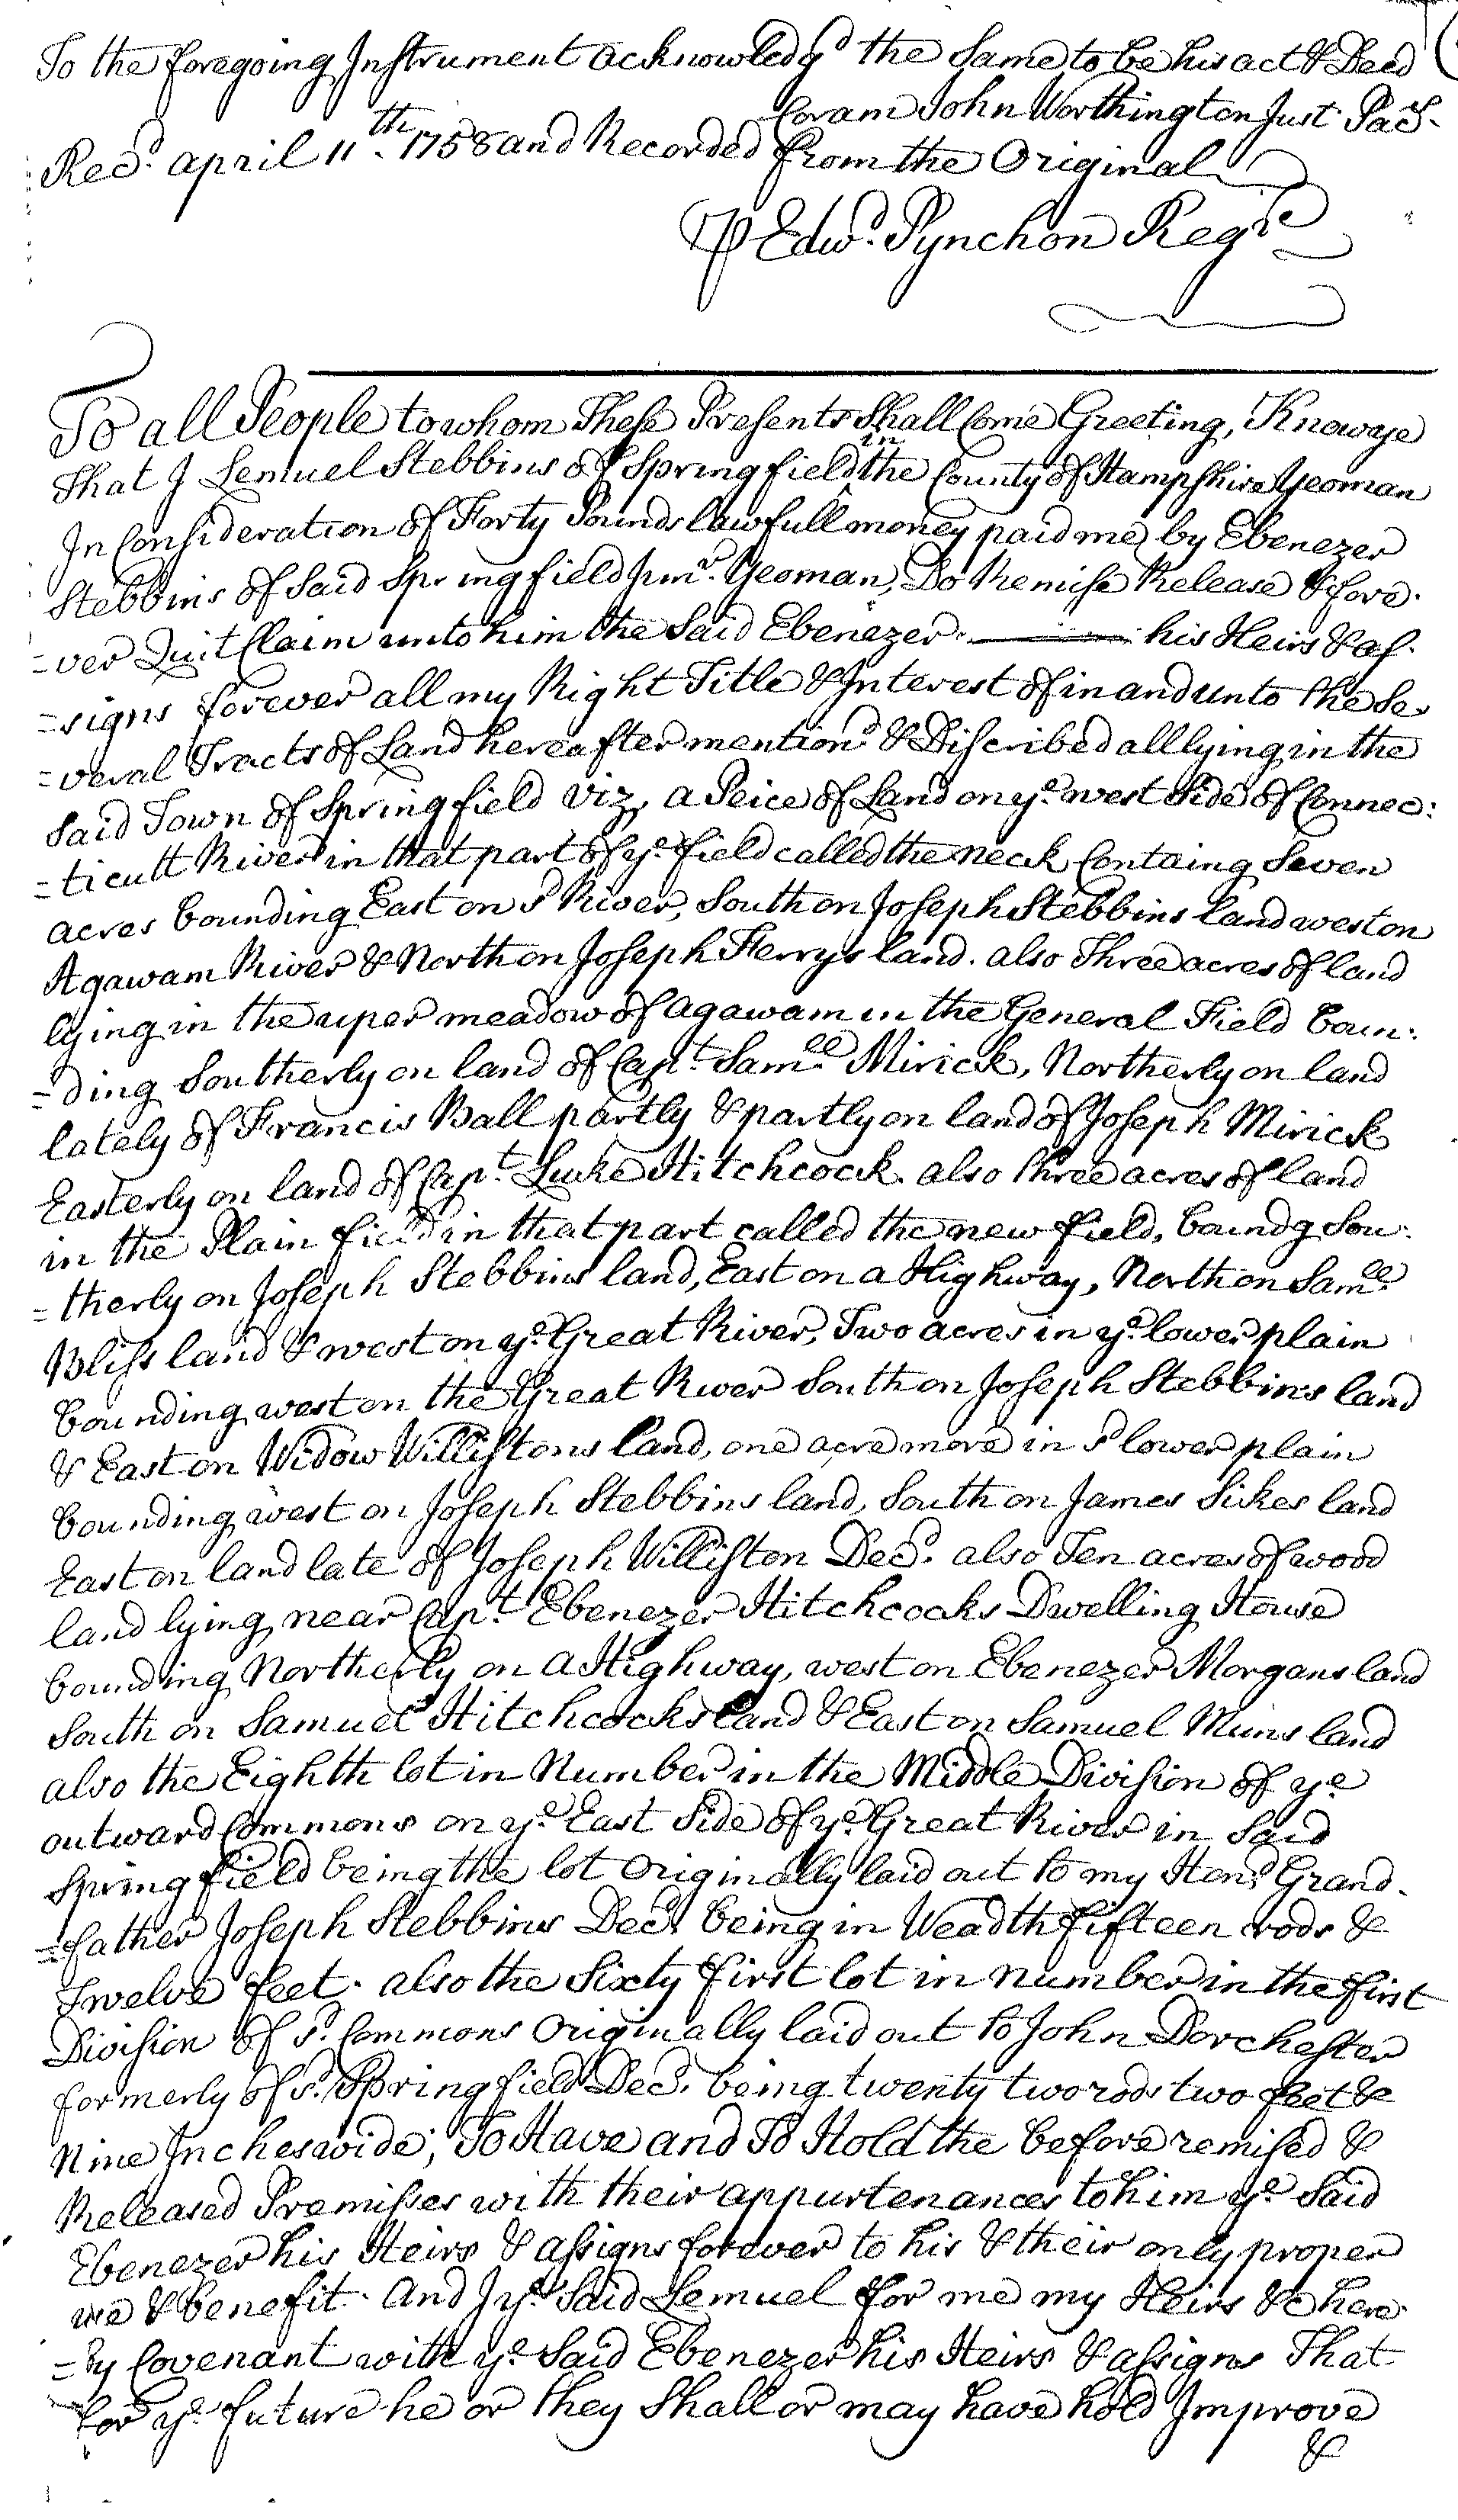 To the foregoing Instrument acknowledgd the Same to be his act & Deed
Coram John Worthington Just. Pacs.
Recd. april 11th. 1758 and Recorded from the Original
P Edwd. Pynchon Regr
To all People to whom These Presents Shall Come Greeting, Know ye
That I Lemuel Stebbins of Springfield in the County of Hampshire Yeoman
In Consideration of Forty Pounds lawfull money paid me by Ebenezer
Stebbins of Said Springfield junr. Yeoman, Do Remise Release & fore-
=ver Quit Claim unto him the Said Ebenezer his Heirs & as-
=signs forever all my Right Title & Interest of in and unto the Se-
=veral Tracts of Land hereafter mentiond. & Discribed all lying in the
Said Town of Springfield viz, a Peice of Land on ye. west Side of Connec:
=ticutt River in that part of ye. field called the neck Containg Seven
acres bounding East on sd River, South on Joseph Stebbins land west on
Agawam River & North on Joseph Ferrys land. also Three acres of land
lying in the uper meadow of agawam in the General Field boun:
=ding Southerly on land of Capt. Samll Mirick, Northerly on land
lately of Francis Ball partly & partly on land of Joseph Mirick
Easterly on land of Capt. Luke Hitchcock. also three acres of land
in the Plain field in that part called the new field, boundg Sou:
=therly on Joseph Stebbins land, East on a Highway, North on Samll
Bliss land & west on ye. Great River, Two acres in ye. lower plain
bounding west on the Great River South on Joseph Stebbins land
& East on Widow Willistons land, one acre more in sd lower plain
bounding west on Joseph Stebbins land, South on James Sikes land
East on land late of Joseph Williston Decd. also Ten acres of wood
land lying near Capt. Ebenezer Hitchcocks Dwelling House
bounding Northerly on a Highway, west on Ebenezer Morgans land
South on Samuel Hitchcocks land & East on Samuel Muns land
also the Eighth lot in Number in the Middle Division of ye
outward Commons on ye. East Side of ye. Great River in Said
Springfield being the lot Originally laid out to my Hond. Grand-
=father Joseph Stebbins Decd. being in Weadth fifteen rods &
Twelve feet. also the Sixty first lot in number in the first
Division of sd. Commons Originally laid out to John Dorchester
formerly of sd. Springfield Decd. being twenty two rods two feet &
Nine Inches wide; To Have and To Hold the before remised &
Released Premisses with their appurtenances to him ye. Said
Ebenezer his Heirs & assigns forever to his & their only proper
use & benefit. And I ye. Said Lemuel for me my Heirs &c here-
=by Covenant with ye. Said Ebenezer his Heirs & assigns That
for ye. future he or they Shall or may have hold Improve
&